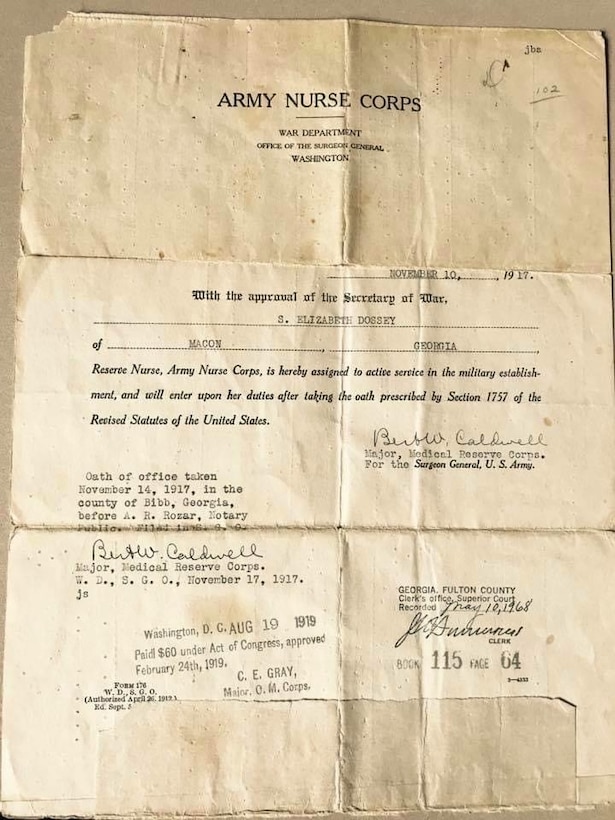 jba
102
ARMY NURSE CORPS
WAR DEPARTMENT
OFFICE OF THE SURGEON GENERAL
WASHINGTON
NOVEMBER 10, 1917.
With the approval of the Secretary of War,
S. ELIZABETH DOSSEY
of MACON, GEORGIA,
Reserve Nurse, Army Nurse Corps, is hereby assigned to active service in the military establish-
ment, and will enter upon her duties after taking the oath prescribed by Section 1757 of the
Revised Statutes of the United States.
Bert W. Caldwell
Major, Medical Reserve Corps.
For the Surgeon General, U. S. Army.
Oath of office taken
November 14, 1917, in the
county of Bibb, Georgia,
before A. R. Rozar, Notary
Public. Filed in S. G. O.
Bert W. Caldwell
Major, Medical Reserve Corps.
W. D., S. G. O., November 17, 1917.
js
GEORGIA, FULTON COUNTY
Clerk's office, Superior Court
Recorded May 10, 1968
CLERK
BOOK 115 PAGE 64
3—4333
Washington, D. C. AUG 19 1919
Paid $60 under Act of Congress, approved
February 24th, 1919.
C. E. GRAY,
Major, Q. M. Corps.
FORM 176
W. D., S. G. O.
(Authorized April 26, 1912.)
Ed. Sept. 5